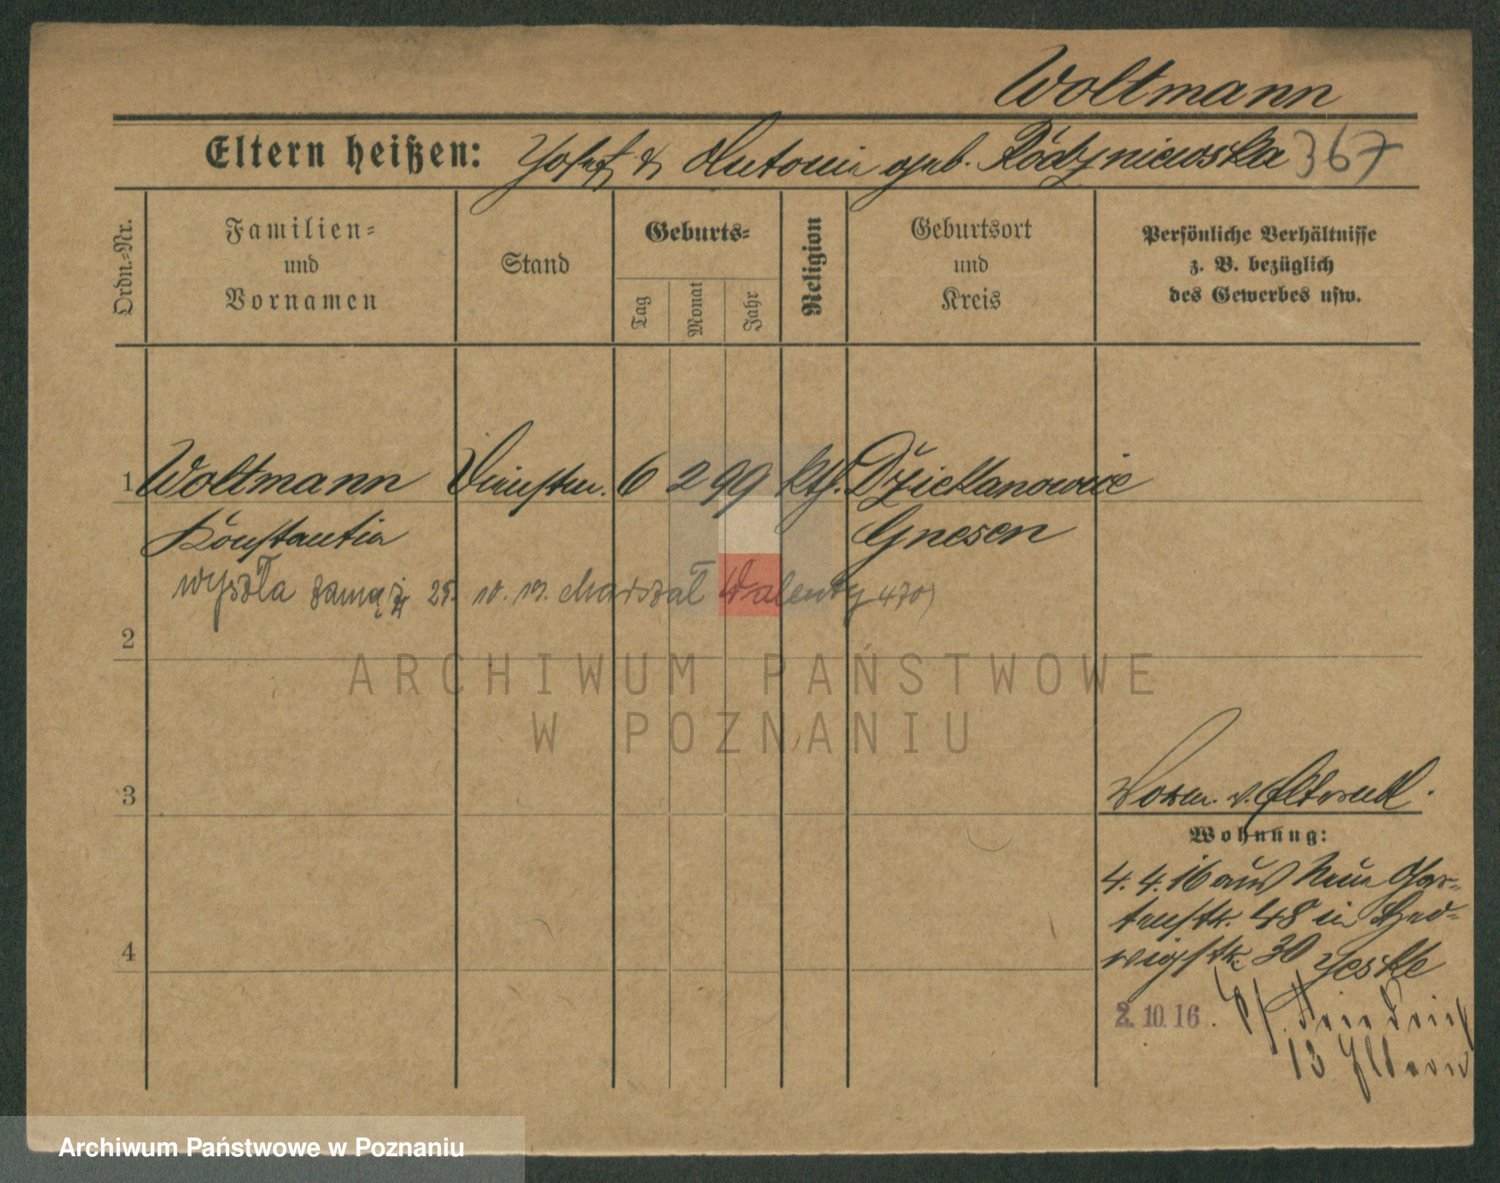 Woltmann
Eltern heißen: Josef & Antonie geb. Ródzniewska 367
Ordn.-Nr.
Familien-
und
Vornamen
Stand
Geburts-
Tag
Monat
Jahr
Religion
Geburtsort
und
Kreis
Persönliche Verhältnisse
z. B. bezüglich
des Gewerbes usw.
1 Woltmann Dienstm. 6 2 99 kth. Dziekanowice
Konstantia Gnesen
wyszła zamąż 25. 10. Marszał Walenty
2
ARCHIWUM PAŃSTWOWE
W POZNANIU
3
Wohnung:
4. 4. 16 aus Neue Gar-
tenstr. 48 in Hed-
wigstr. 30 Jeske
2. 10. 16.
13 Eltern
4
Archiwum Państwowe w Poznaniu